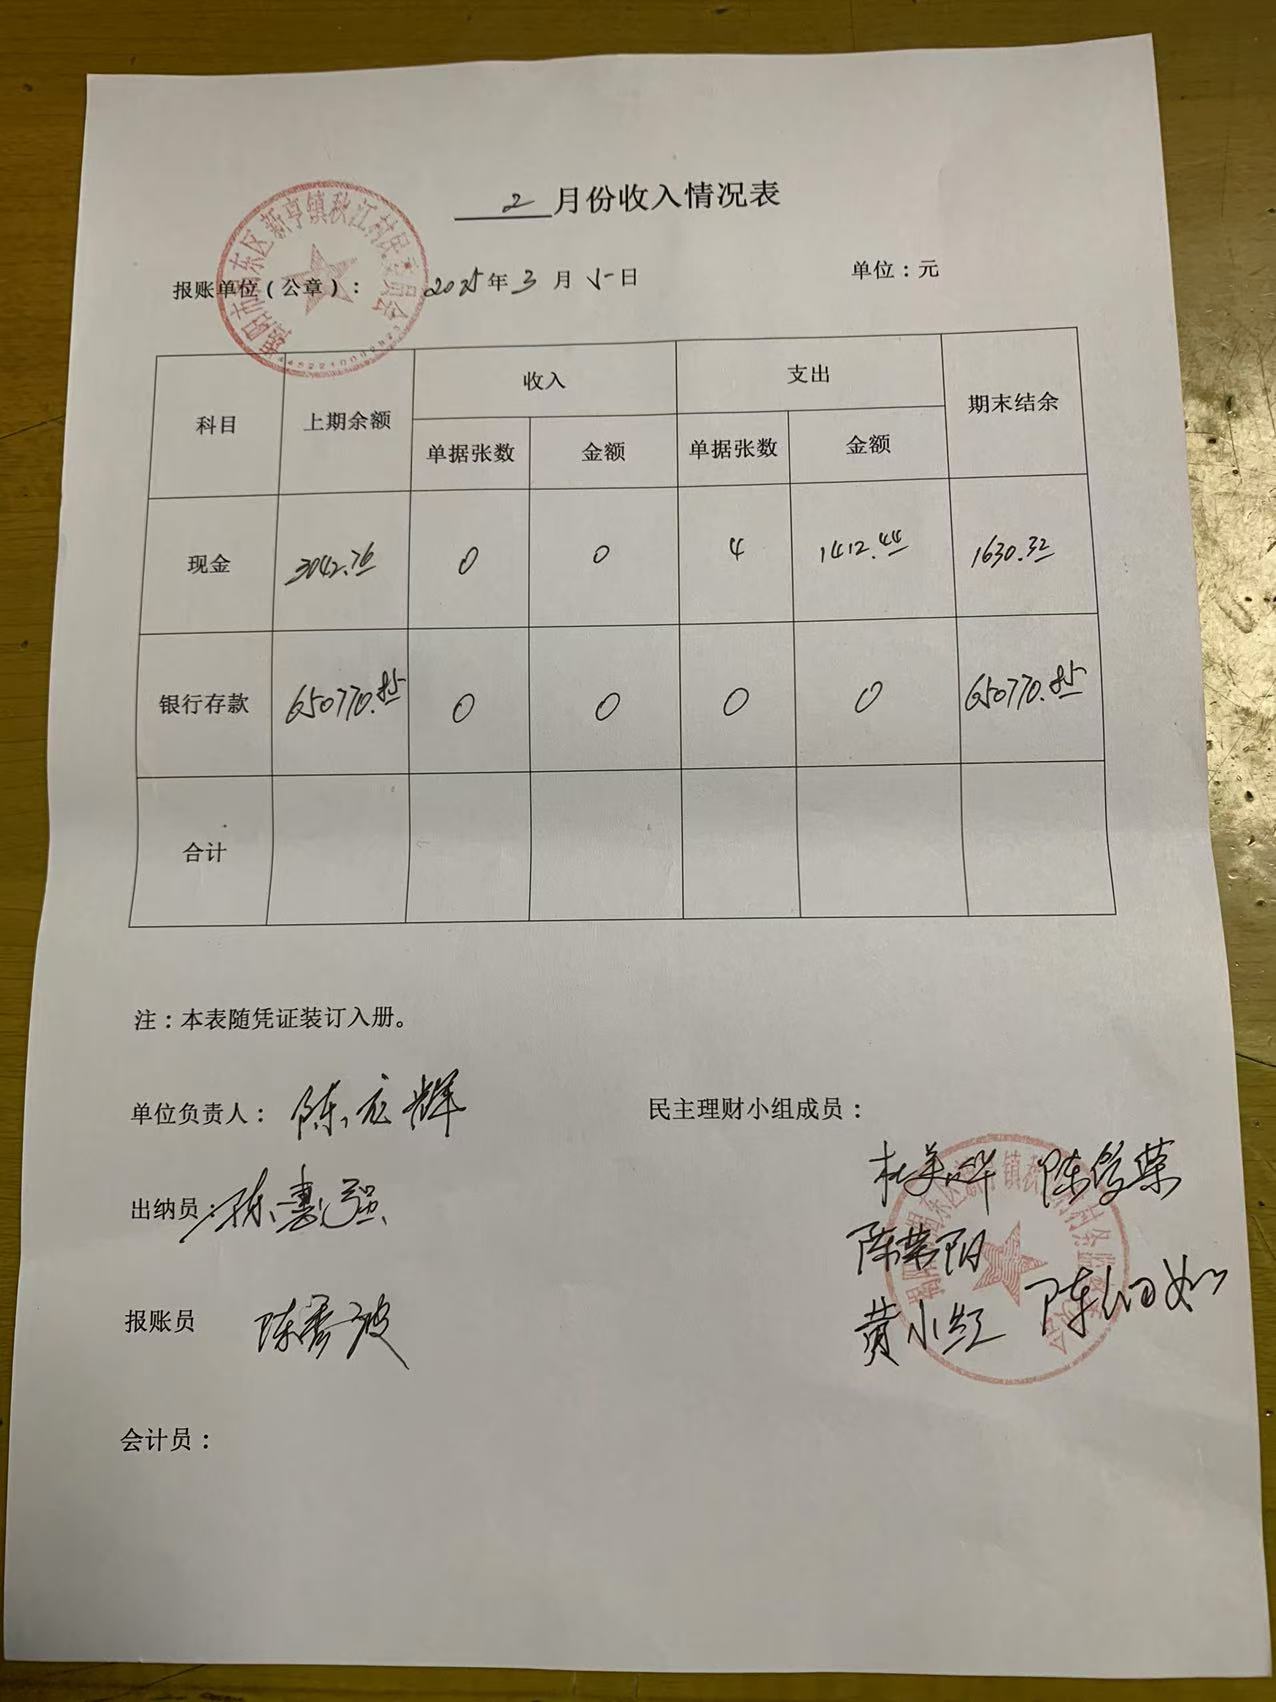 2月份收入情况表
揭阳市揭东区新亨镇秋江村民委员会
报账单位(公章): 2025年3月5日 单位:元
科目 上期余额 收入 支出 期末结余
单据张数 金额 单据张数 金额
现金 3042.76 0 0 4 1412.44 1630.32
银行存款 650770.85 0 0 0 0 650770.85
合计
注:本表随凭证装订入册。
单位负责人: 陈宏辉 民主理财小组成员:
出纳员: 陈惠强
陈荣阳
报账员 陈秀波
黄小红
会计员: